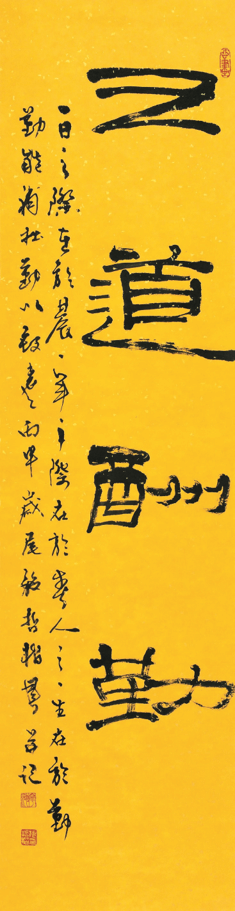 天道酬勤
一日之際在於晨一年之際在於春人之一生在於勤
勤能補拙勤以丙申歲尾